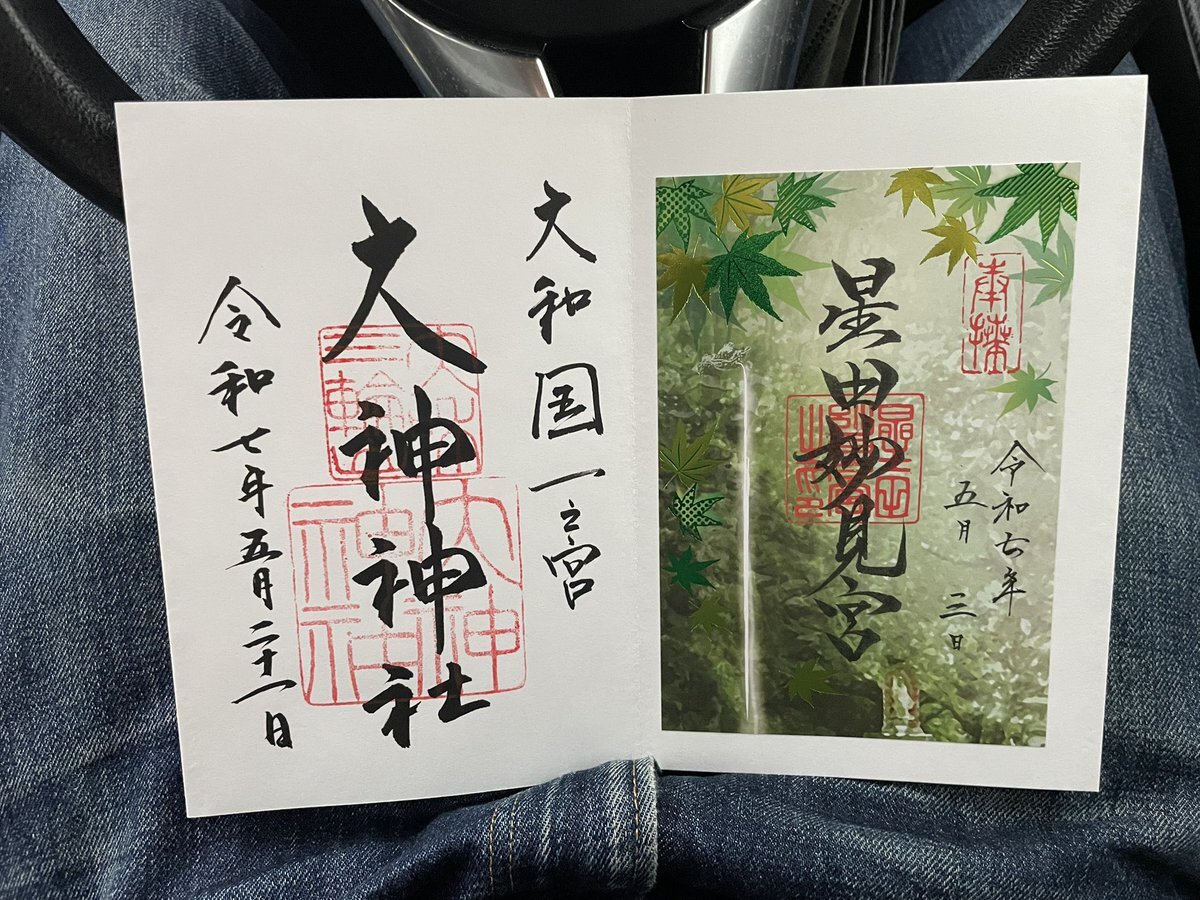 奉拝
令和七年
五月 三日
星田妙見宮
大和国一之宮
大神神社
令和七年五月二十一日